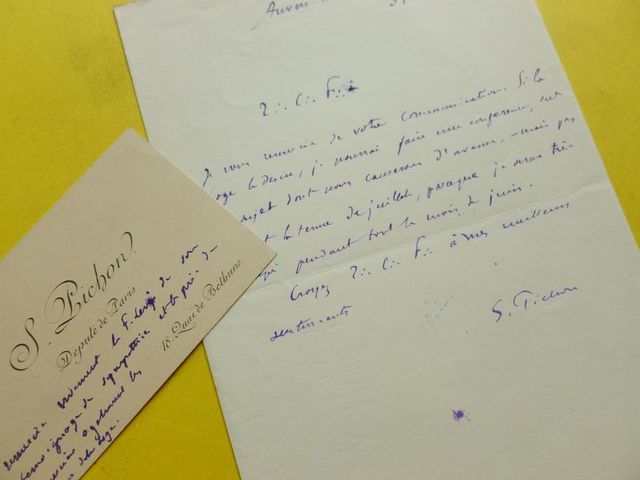 T∴ C∴ F∴
Je vous remercie de votre communication. Si la
loge le désire, je pourrai faire une conférence, sur
sujet dont nous causerons d'avance, – mais pas
la tenue de juillet, parce que je serai très
pendant tout le mois de juin.
Croyez T∴ C∴ F∴ à mes meilleurs
sentiments
S. Pichon
S. Pichon
Député de Paris
18, Quai de Béthune
remercie vivement le F. de son
témoignage de sympathie et le prie de
également les
de la Loge.